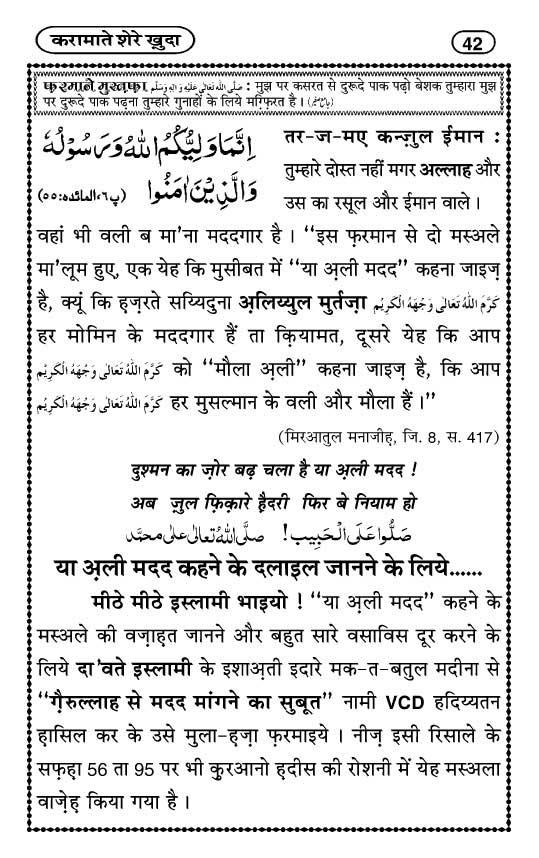 करामाते शेरे ख़ुदा
42
फरमाने मुस्तफा صَلَّى اللهُ تَعَالٰى عَلَيْهِ وَاٰلِهٖ وَسَلَّم : मुझ पर कसरत से दुरूदे पाक पढ़ो बेशक तुम्हारा मुझ
पर दुरूदे पाक पढ़ना तुम्हारे गुनाहों के लिये मग़्फ़िरत है।
اِنَّمَا وَلِیُّكُمُ اللّٰهُ وَ رَسُوْلُهٗ
وَ الَّذِیْنَ اٰمَنُوا (پ٦، المائدہ:٥٥)
तर-ज-मए कन्ज़ुल ईमान :
तुम्हारे दोस्त नहीं मगर अल्लाह और
उस का रसूल और ईमान वाले।
वहां भी वली ब मा'ना मददगार है। ‘‘इस फ़रमान से दो मस्अले
मा'लूम हुए, एक येह कि मुसीबत में ‘‘या अ़ली मदद’’ कहना जाइज़
है, क्यूं कि ह़ज़रते सय्यिदुना अ़लिय्युल मुर्तज़ा كَرَّمَ اللهُ تَعَالٰى وَجْهَهُ الْكَرِيْم
हर मोमिन के मददगार हैं ता क़ियामत, दूसरे येह कि आप
كَرَّمَ اللهُ تَعَالٰى وَجْهَهُ الْكَرِيْم को ‘‘मौला अ़ली’’ कहना जाइज़ है, कि आप
كَرَّمَ اللهُ تَعَالٰى وَجْهَهُ الْكَرِيْم हर मुसल्मान के वली और मौला हैं।’’
(मिरआतुल मनाजीह़, जि. 8, स. 417)
दुश्मन का ज़ोर बढ़ चला है या अ़ली मदद !
अब ज़ुल फ़िक़ारे ह़ैदरी फिर बे नियाम हो
صَلُّوْا عَلَى الْحَبِيْب! صلَّى اللهُ تعالٰى علٰى محمَّد
या अ़ली मदद कहने के दलाइल जानने के लिये......
मीठे मीठे इस्लामी भाइयो ! ‘‘या अ़ली मदद’’ कहने के
मस्अले की वज़ाह़त जानने और बहुत सारे वसाविस दूर करने के
लिये दा'वते इस्लामी के इशाअ़ती इदारे मक-त-बतुल मदीना से
‘‘ग़ैरुल्लाह से मदद मांगने का सुबूत’’ नामी VCD हदिय्यतन
ह़ासिल कर के उसे मुला-ह़ज़ा फ़रमाइये। नीज़ इसी रिसाले के
सफ़ह़ा 56 ता 95 पर भी क़ुरआनो ह़दीस की रोशनी में येह मस्अला
वाज़ेह़ किया गया है।